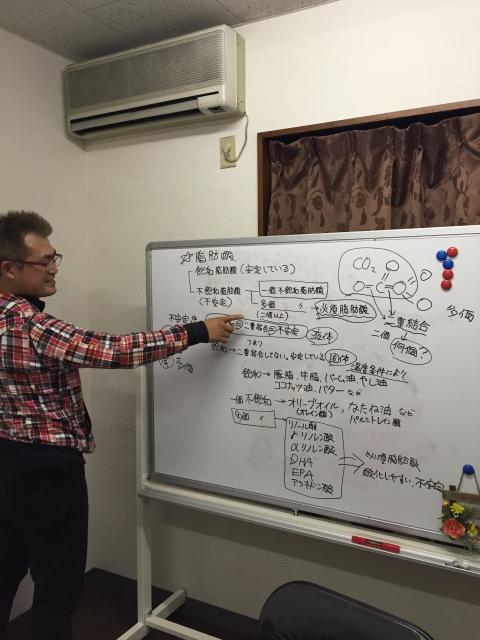 ☆脂肪酸
飽和脂肪酸 (安定している)
不飽和脂肪酸
(不安定)
一価不飽和脂肪酸
多価 〃
(二個以上)
必須脂肪酸
CO₂
二重結合
二個
何個?
多価
不安定
二重結合
不安定
液体
つまり
飽和→二重結合しない。安定している
固体
温度条件により
多価
飽和→豚脂、牛脂、パーム油、やし油
ココナッツ油、バターなど
一価不飽和→オリーブオイル、なたね油など
(オレイン酸)
パルミトレイン酸
多価 〃
リノール酸
γリノレン酸
αリノレン酸
DHA
EPA
アラキドン酸
必須脂肪酸
酸化しやすい、不安定